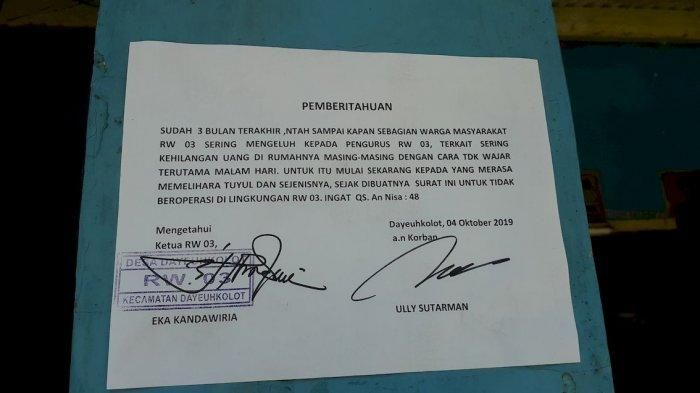 PEMBERITAHUAN
SUDAH 3 BULAN TERAKHIR ,NTAH SAMPAI KAPAN SEBAGIAN WARGA MASYARAKAT
RW 03 SERING MENGELUH KEPADA PENGURUS RW 03, TERKAIT SERING
KEHILANGAN UANG DI RUMAHNYA MASING-MASING DENGAN CARA TDK WAJAR
TERUTAMA MALAM HARI. UNTUK ITU MULAI SEKARANG KEPADA YANG MERASA
MEMELIHARA TUYUL DAN SEJENISNYA, SEJAK DIBUATNYA SURAT INI UNTUK TIDAK
BEROPERASI DI LINGKUNGAN RW 03. INGAT QS. An Nisa : 48
Mengetahui
Ketua RW 03,
DESA DAYEUHKOLOT
RW. 03
KECAMATAN DAYEUHKOLOT
EKA KANDAWIRIA
Dayeuhkolot, 04 Oktober 2019
a.n Korban
ULLY SUTARMAN